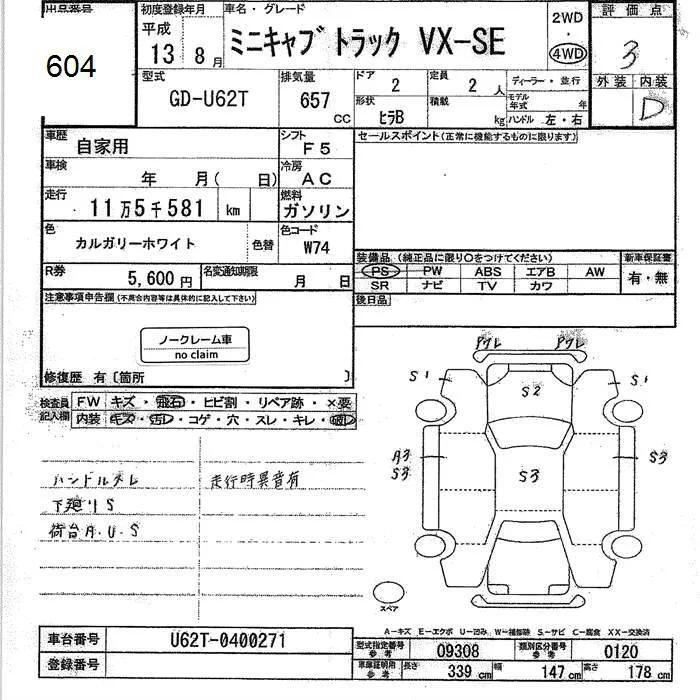 出品番号
604
初度登録年月
平成
13 8月
車名・グレード
ミニキャブトラック VX-SE
2WD
・
4WD
評価点
3
外装 内装
D
型式
GD-U62T
排気量
657
CC
ドア
2
定員
2 人
ディーラー・並行
形状
ヒラB
積載
kg
モデル年式 年
ハンドル 左・右
車歴
自家用
シフト
F5
セールスポイント(正常に機能するものに限り)
車検
年 月( 日)
冷房
AC
走行
11万5千581 km
燃料
ガソリン
色
カルガリーホワイト
色替
色コード
W74
装備品(純正品に限り〇をつけてください)
新車保証書
PS PW ABS エアB AW
SR ナビ TV カワ
有・無
R券
5,600円
名変通知期限
月 日
後日品
注意事項申告欄(不具合内容等は具体的に記入して下さい)
ノークレーム車
no claim
修復歴 有〔箇所 〕
検査員
記入欄
FW キズ・飛石・ヒビ割・リペア跡・×要
内装 キズ・汚レ・コゲ・穴・スレ・キレ・破レ
ハンドルスレ
走行時異音有
下廻りS
荷台A.U.S
アハレ アハレ
S1 S2 S1
A3
S3 S3 S3
スペア
A-キズ E-エクボ U-凹み W-補修跡 S-サビ C-腐食 XX-交換済
車台番号
U62T-0400271
登録番号
型式指定番号
参考
09308
類別区分番号
参考
0120
車庫証明用
参考
長さ
339 cm
幅
147 cm
高さ
178 cm